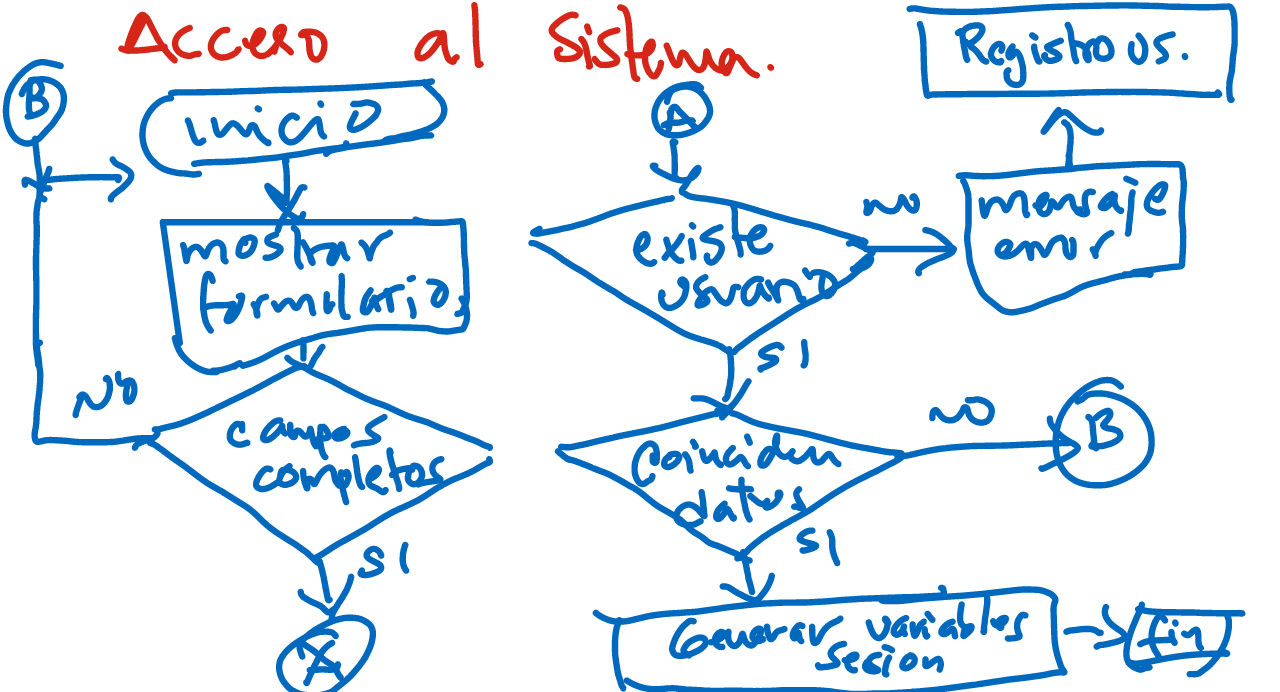 Acceso al Sistema.
B
inicio
mostrar
formulario
NO
campos
completos
SI
A
A
existe
usuario
NO
mensaje
error
Registro us.
SI
Coinciden
datos
NO
B
SI
Generar variables
sesion
fin